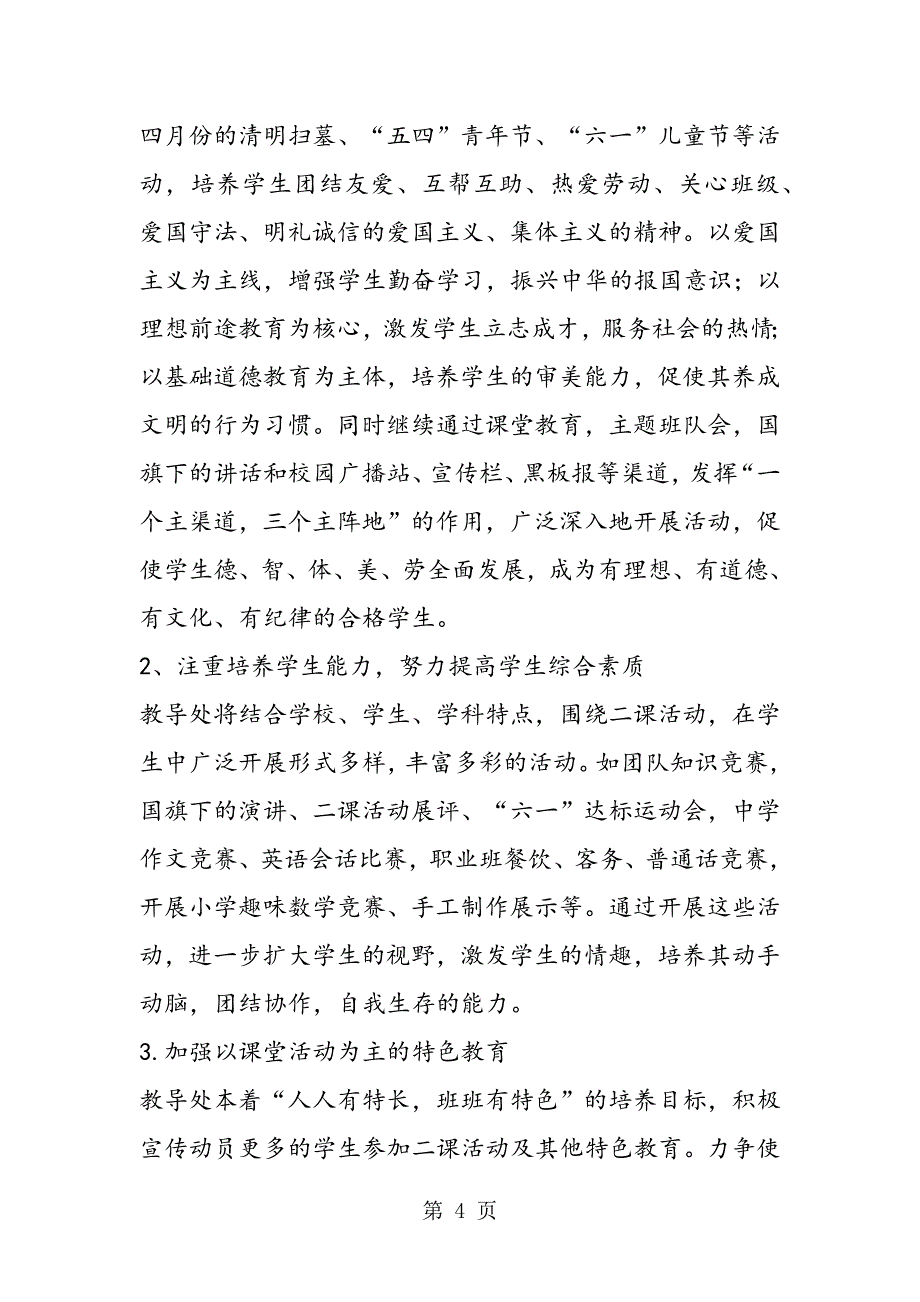 四月份的清明扫墓、“五四”青年节、“六一”儿童节等活
动，培养学生团结友爱、互帮互助、热爱劳动、关心班级、
爱国守法、明礼诚信的爱国主义、集体主义的精神。以爱国
主义为主线，增强学生勤奋学习，振兴中华的报国意识；以
理想前途教育为核心，激发学生立志成才，服务社会的热情；
以基础道德教育为主体，培养学生的审美能力，促使其养成
文明的行为习惯。同时继续通过课堂教育，主题班队会，国
旗下的讲话和校园广播站、宣传栏、黑板报等渠道，发挥“一
个主渠道，三个主阵地”的作用，广泛深入地开展活动，促
使学生德、智、体、美、劳全面发展，成为有理想、有道德、
有文化、有纪律的合格学生。
2、注重培养学生能力，努力提高学生综合素质
教导处将结合学校、学生、学科特点，围绕二课活动，在学
生中广泛开展形式多样，丰富多彩的活动。如团队知识竞赛，
国旗下的演讲、二课活动展评、“六一”达标运动会，中学
作文竞赛、英语会话比赛，职业班餐饮、客务、普通话竞赛，
开展小学趣味数学竞赛、手工制作展示等。通过开展这些活
动，进一步扩大学生的视野，激发学生的情趣，培养其动手
动脑，团结协作，自我生存的能力。
3.加强以课堂活动为主的特色教育
教导处本着“人人有特长，班班有特色”的培养目标，积极
宣传动员更多的学生参加二课活动及其他特色教育。力争使
第 4 页